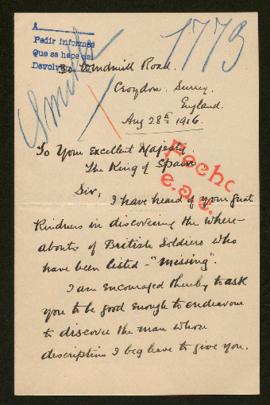 A
Pedir informes
Que se hace de
Devolver
1773
Smith
Windmill Road.
Croydon. Surrey.
England.
Aug 28th 1916.
To Your Excellent Majesty
The King of Spain
Fecho
Sir,
I have heard of your great
kindness in discovering the where-
abouts of British Soldiers who
have been listed - "missing".
I am encouraged thereby to ask
you to be good enough to endeavour
to discover the man whose
description I beg leave to give you.